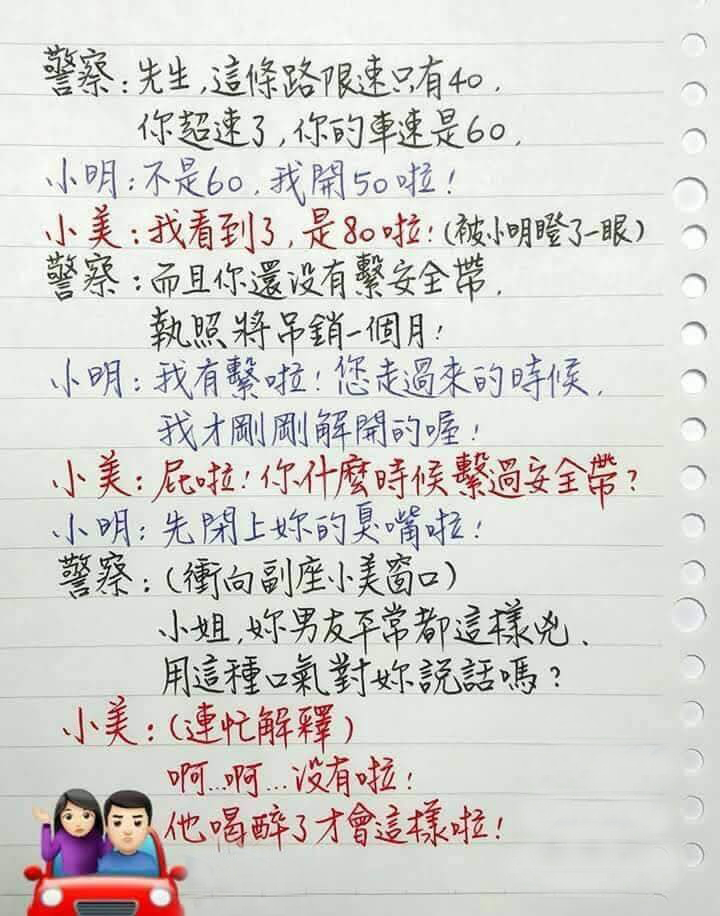 警察:先生,這條路限速只有40.
你超速了,你的車速是60.
小明:不是60.我開50啦!
小美:我看到了,是80啦!(被小明瞪了一眼)
警察:而且你還没有繫安全帶.
執照將吊銷一個月!
小明:我有繫啦!您走過來的時候.
我才剛剛解開的喔!
小美:屁啦!你什麼時候繫過安全帶?
小明:先閉上妳的臭嘴啦!
警察:(衝向副座小美窗口)
小姐,妳男友平常都這樣兇.
用這種口氣對妳說話嗎?
小美:(連忙解釋)
啊...啊...没有啦!
他喝醉了才會這樣啦!